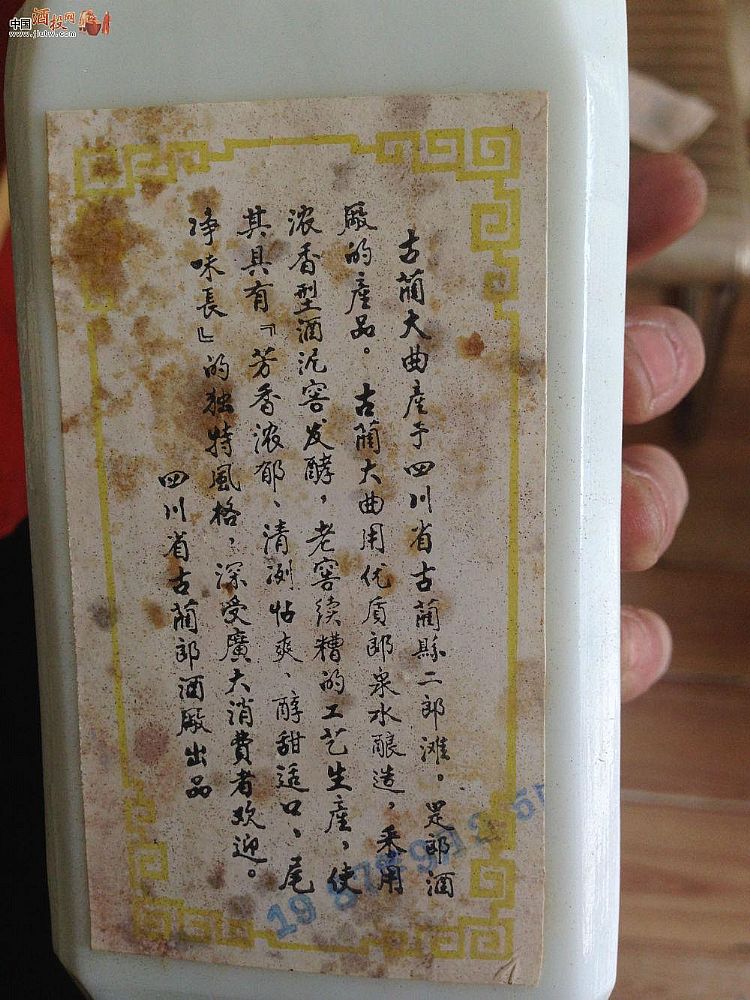 中国酒投网
www.jiutw.com
古藺大曲産于四川省古藺縣二郎滩。是郎酒
厰的産品。古藺大曲用优质郎泉水酿造，采用
浓香型酒泥窖发酵，老窖续糟的工艺生産，使
其具有『芳香浓郁、清洌怗爽、醇甜适口、尾
净味長』的独特風格，深受廣大消費者欢迎。
四川省古藺郎酒厰出品